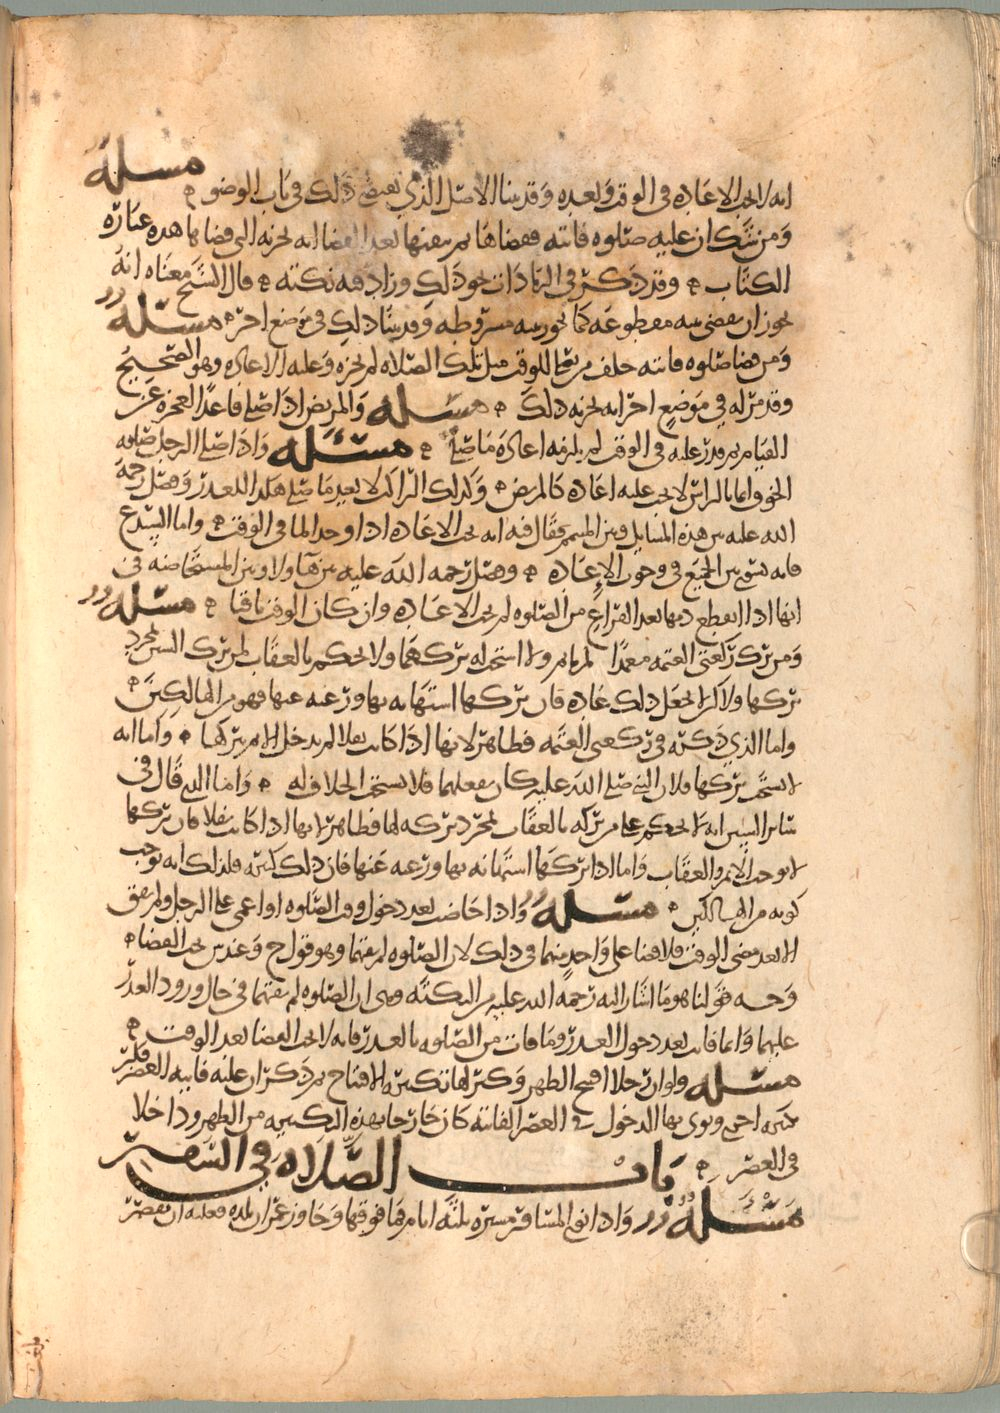 انه لا تجب الاعاده فى الوقت وبعده وقد بينا الاصل الذي يقتضي ذلك في باب الوضو ۶ مسله
ومن شك ان عليه صلوه فائته فقضاها ثم تيقنها بعد القضا انه لم يجزيه التى قضاها هده عباره
الكتاب ۶ وقد ذكر في الزيادات نحو ذلك وزاد فيه نكته ۶ قال الشيخ معناه انه
يجوز ان يقضى بنيه مقطوعه كما يجوز بنيه مشروطه وقد بينا ذلك في موضع اخر ۶ مسله
ومن قضا صلوه فائته خلف من يصلي للوقت مثل تلك الصلاه لم يجزه وعليه الاعاده وهو الصحيح
وقد مر له في موضع اخر انه يجزيه ذلك ۶ مسله والمريض اذا صلى قاعدا لعجزه عن
القيام ثم قدر عليه في الوقت لم يلزمه اعادة ما صلى ۶ مسئله واذا صلى الرجل صلوه
الخوف ايما بالراس لا يجب عليه اعاده كالمريض ۶ وكذلك الراكب لا يعيد ما صلى هكدا للعدر وفصل رحمه
الله عليه بين هذه المسايل وبين المتيمم فقال فيه انه تجب الاعاده اذا وجد الما في الوقت ۶ واما السيد ع
فانه يسوي بين الجميع في وجوب الاعاده ۶ وفصل رحمه الله عليه بين هاولا وبين المستحاضه في
انها اذا انقطع دمها بعد الفراغ من الصلوه لم تجب الاعاده وان كان الوقت باقيا ۶ مسله
ومن ترك ركعتى العتمه متعمدا لم ياثم ولا استحب له تركهما ولا نحكم بالعقاب لمن ترك السنن لمجرد
تركها ولا اكره لجعل ذلك عاده فان تركها استهانه بها ورغبه عنها فهو من الهالكين ۶
واما الذي ذكره في ركعتى العتمه فظاهر لانها اذا كانت نفلا لم يدخل الاثم بتركها ۶ واما انه
لا يستحب تركها فلان النبي صلى الله عليه كان يفعلهما فلا يستحب الخلاف له ۶ واما الذي قال في
سائر السنن انه لا نحكم على من تركه بالعقاب لمجرد تركه لها فظاهر لانها اذا كانت نفلا فان تركها
لا يوجب الاثم والعقاب واما اذا تركها استهانه بها ورغبه عنها فان ذلك كبيره فلذلك انه يوجب
كونه من الهالكين ۶ مسله واذا حاضت بعد دخول وقت الصلوه او اغمى على الرجل ولم يفق
الا بعد مضى الوقت فلا قضا على واحد منهما في ذلك لان الصلوه لم تفتهما وهو قول ح وعند ش يجب القضا ۶
وجه قولنا هو ما اشار اليه رحمه الله عليه من النكته وهى ان الصلوه لم تفتهما في حال ورود العذر
عليهما وانما فاتت بعد دخول العدر وما فات من الصلوه بالعدر فانه لا يجب القضا بعد الوقت ۶
مسله ولو ان رجلا افتتح الظهر وكبر لها تكبيره الافتاح ثم ذكر ان عليه فايته العصر فكبر
تكبيره اخرى ونوى بها الدخول في العصر الفائته كان خارجا بهذه التكبيره من الظهر وداخلا
في العصر ۶ باب الصلاه في السفر
مسئله واذا نوى المسافر مسيره ثلثه ايام فما فوقها وجاوز عمران بلده فعليه ان يقصر